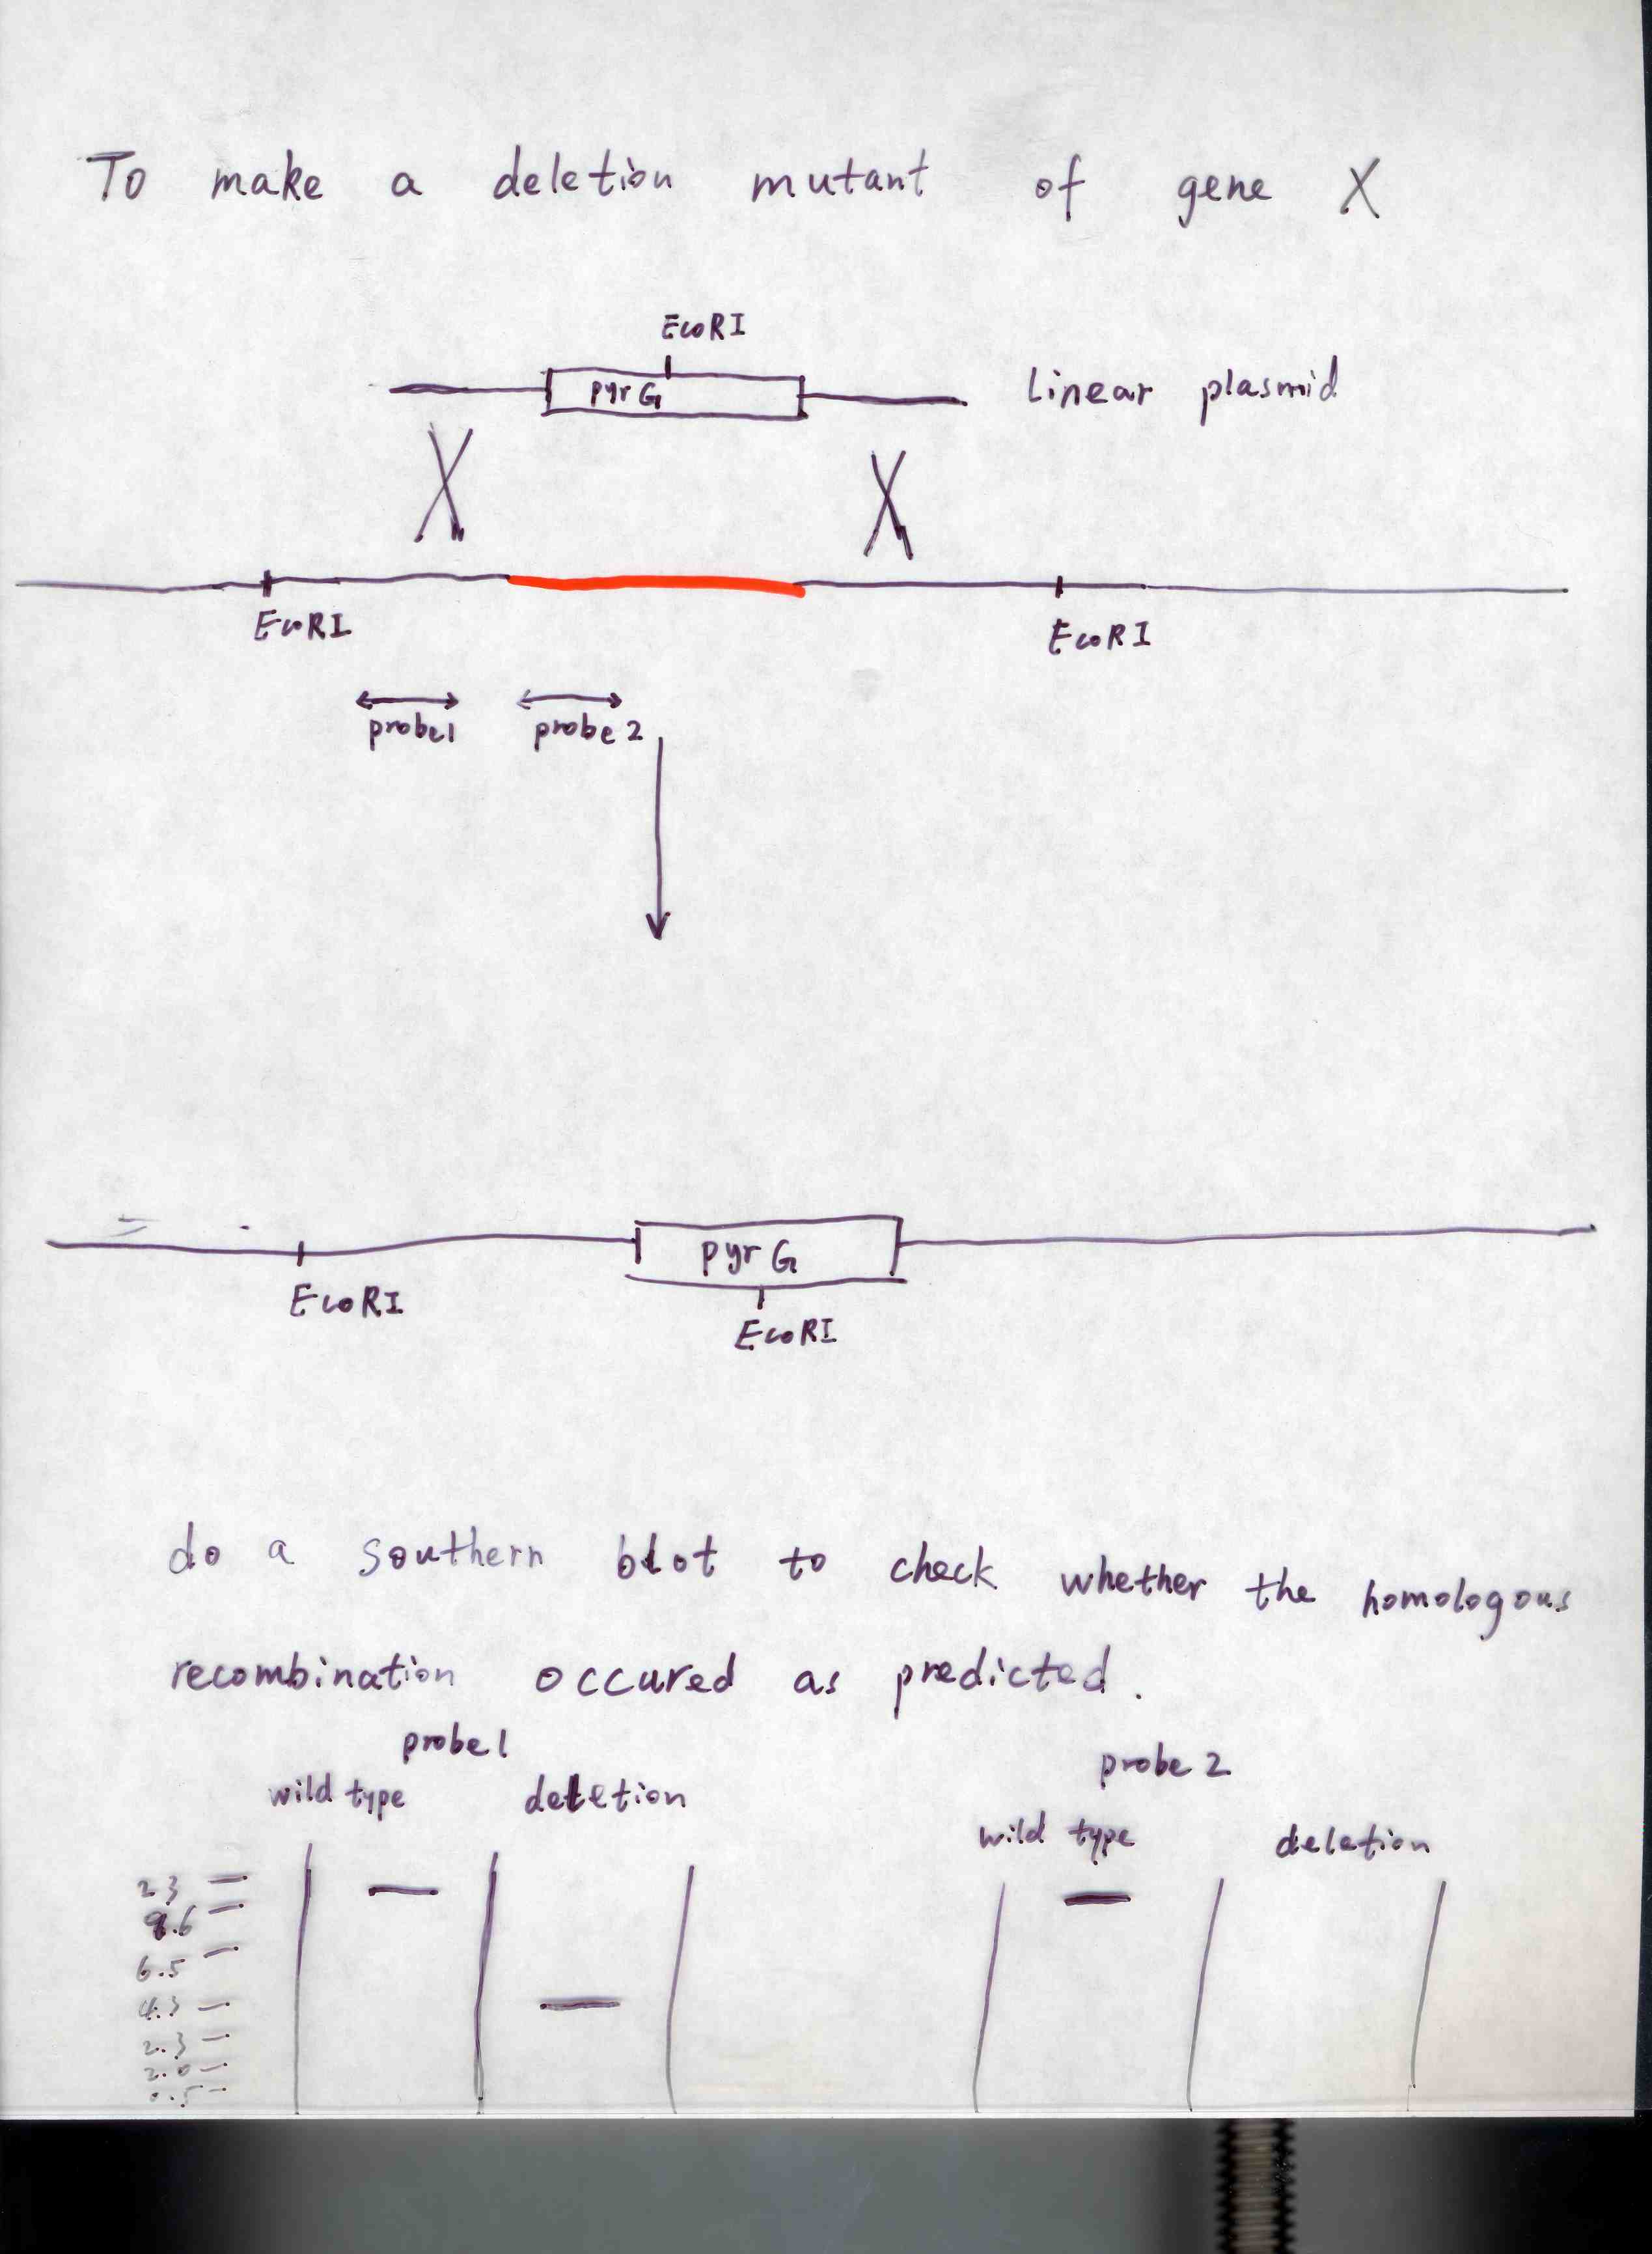 To make a deletion mutant of gene X
EcoRI
pyrG
Linear plasmid
EcoRI
EcoRI
probe1
probe2
pyrG
EcoRI
EcoRI
do a southern blot to check whether the homologous
recombination occured as predicted.
probe1
wild type
deletion
probe 2
wild type
deletion
23
9.6
6.5
4.3
2.3
2.0
0.5